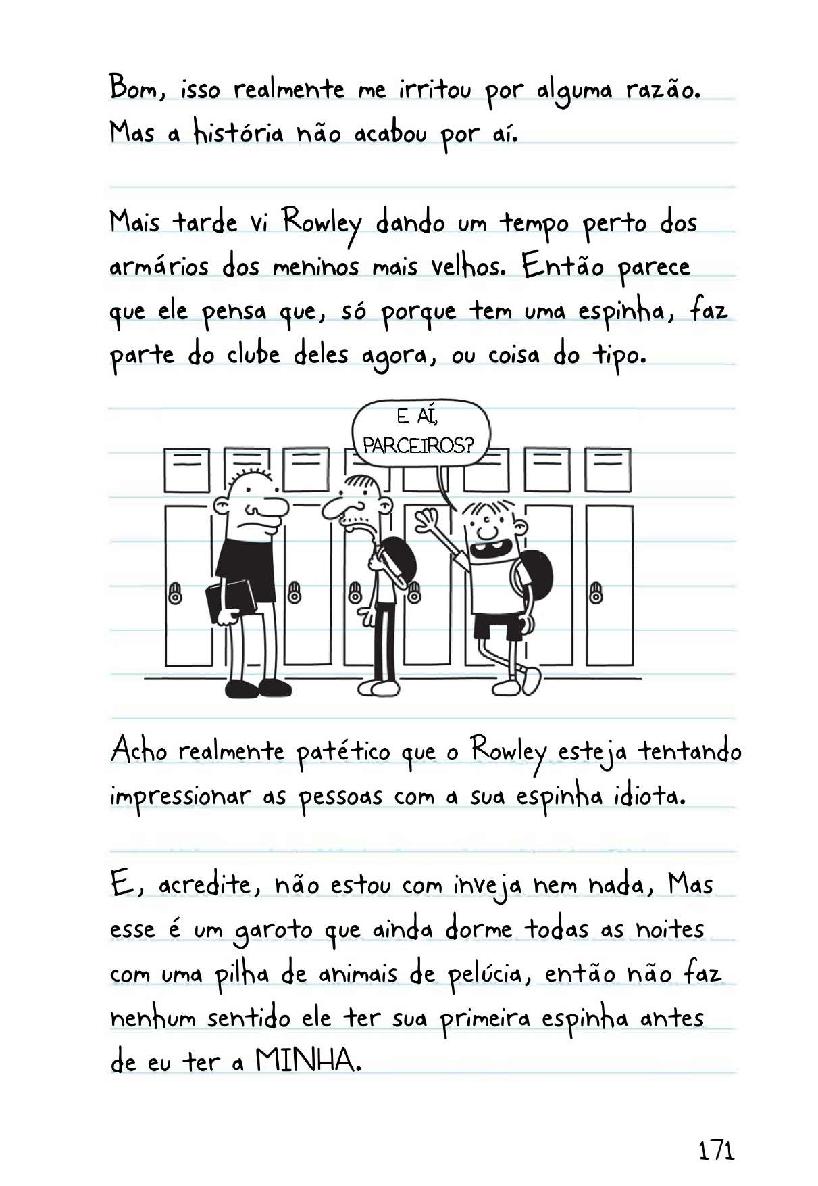 Bom, isso realmente me irritou por alguma razão.
Mas a história não acabou por aí.
Mais tarde vi Rowley dando um tempo perto dos
armários dos meninos mais velhos. Então parece
que ele pensa que, só porque tem uma espinha, faz
parte do clube deles agora, ou coisa do tipo.
E AÍ,
PARCEIROS?
Acho realmente patético que o Rowley esteja tentando
impressionar as pessoas com a sua espinha idiota.
E, acredite, não estou com inveja nem nada, Mas
esse é um garoto que ainda dorme todas as noites
com uma pilha de animais de pelúcia, então não faz
nenhum sentido ele ter sua primeira espinha antes
de eu ter a MINHA.
171